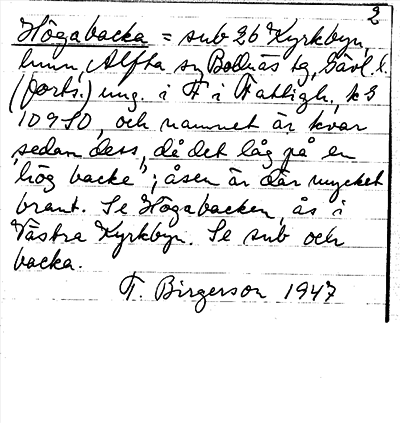 2
Högabacka = sub 26 Kyrkbyn,
hmn, Alfta sn, Bollnäs tg, Gävl. l.
(forts.) ung. i F i Fattigh., k 3
10950, och namnet är kvar
"sedan dess, då det låg på en
hög backe"; åsen är där mycket
brant. Se Högabacken, ås i
Västra Kyrkbyn. Se sub och
backa.
F. Birgerson 1947